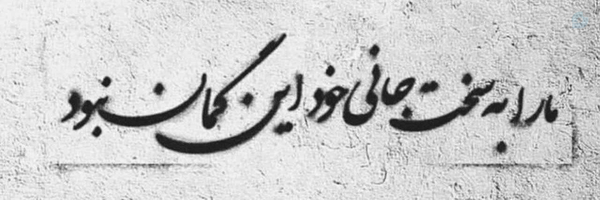 ما را به سخت جانی خود این گمان نبود